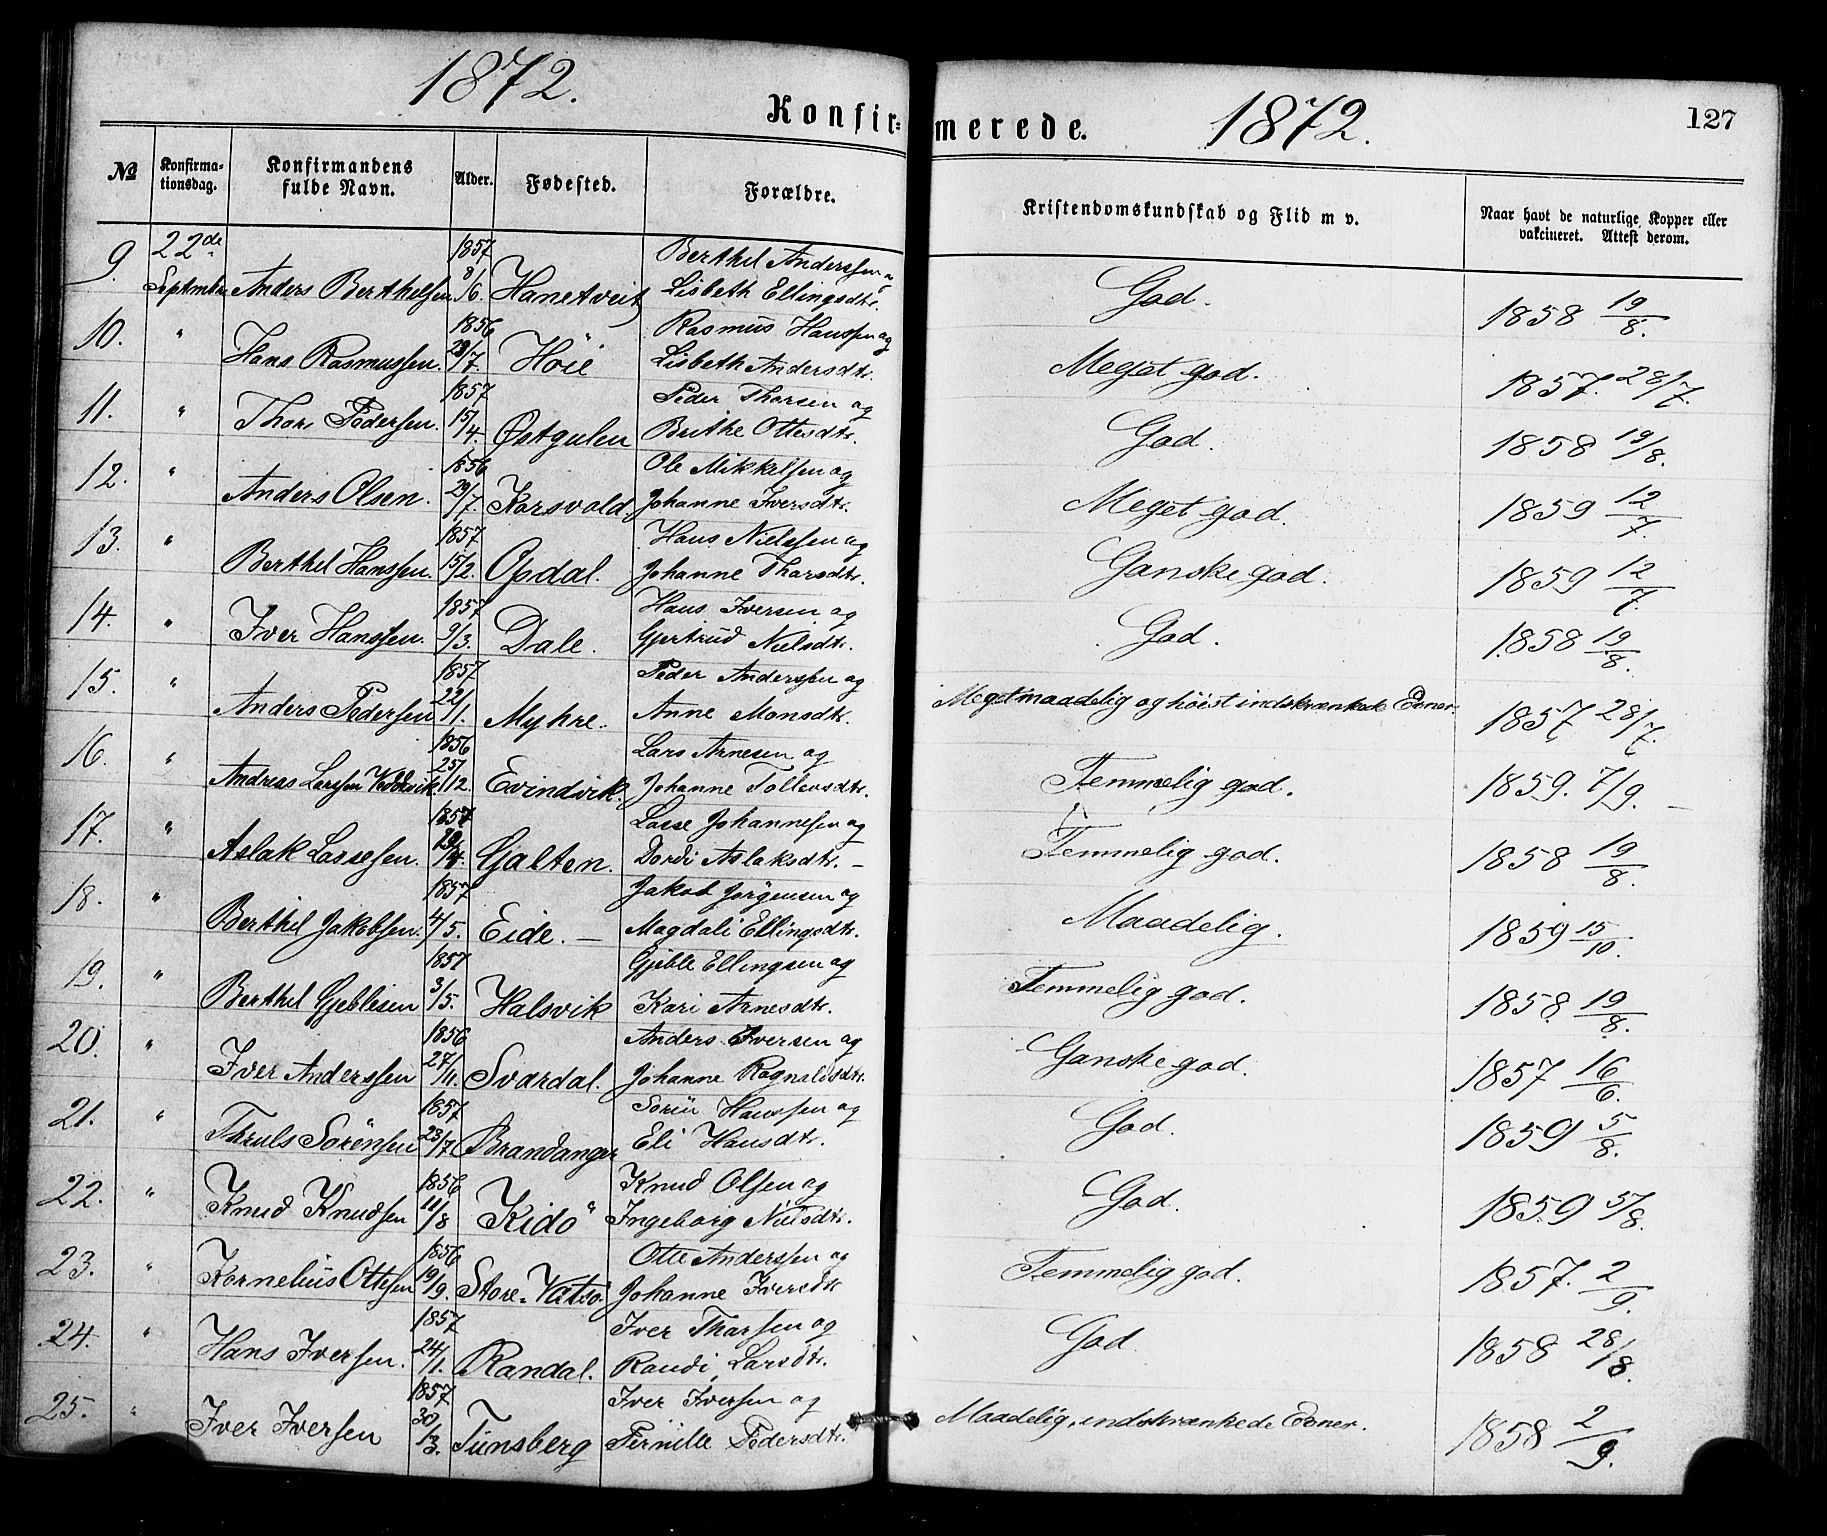 1872.
1872.
127
Konfirmerede.
№ Konfirmationsdag. Konfirmandens fulde Navn. Alder. Fødested. Forældre. Kristendomskundskab og Flid m v. Naar havt de naturlige Kopper eller vakcineret. Attest derom.
9. 22de September Anders Berthelsen 1857 8/6. Hanetveit Berthel Anderssen og Lisbeth Ellingsdtr. God. 1858 19/8.
10. " Hans Rasmussen. 1856 29/7. Höie Rasmus Hanssen og Lisbeth Andersdtr. Meget god. 1857. 28/7.
11. " Thore Pedersen. 1857 15/4. Østgulen Peder Thorsen og Brithe Ottesdtr. God. 1858 19/8.
12. " Anders Olsen. 1856 29/7. Korsvold. Ole Mikkelsen og Johanne Iversdtr. Meget god. 1859 12/7.
13. " Berthel Hanssen. 1857 15/2. Opdal. Hans Nielssen og Johanne Thorsdtr. Ganske god. 1859 12/7.
14. " Iver Hanssen. 1857 9/3. Dale. Hans Iversen og Gjertrud Nielsdtr. God. 1858 19/8.
15. " Anders Pedersen 1857 22/1. Myhre. Peder Anderssen og Anne Monsdtr. Meget maadelig og höist indskrænkede Evner. 1857 28/7.
16. " Andreas Larssen 1856 25/12. Evindvik. Lars Arnesen og Johanne Tollevsdtr. Temmelig god. 1859. 7/9.
17. " Aslak Lassesen. 1857 29/4. Gjalten. Lasse Johannesen og Dordi Aslaksdtr. Temmelig god. 1858 19/8.
18. " Berthel Jakobsen. 1857 4/5. Eide. Jakob Jörgensen og Magdali Ellingsdtr. Maadelig. 1859 15/10.
19. " Berthel Gjeblesen 1857 3/5. Halsvik Gjeble Ellingsen og Kari Arnesdtr. Temmelig god. 1858. 19/8.
20. " Iver Anderssen 1856 27/11. Svardal. Anders Iversen og Johanne Ragnaldsdtr. Ganske god. 1857 16/6.
21. " Thruls Sörensen 1857 23/7 Brandanger Sören Hanssen og Eli Hansdtr. God. 1859 5/8.
22. " Knud Knudsen 1856 11/8 Kidö Knud Olsen og Ingeborg Nielsdtr. God. 1859 5/8.
23. " Kornelius Ottesen 1856 19/9. Store-Vatsö. Otte Anderssen og Johanne Iversdtr Temmelig god. 1857. 2/9.
24. " Hans Iversen. 1857 24/1. Randal. Iver Thorsen og Randi Larsdtr. God. 1858 28/8.
25. " Iver Iversen 1857 30/3. Tunsberg Iver Iversen og Pernille Pedersdtr. Maadelig, indskrænkede Evner. 1858 2/9.